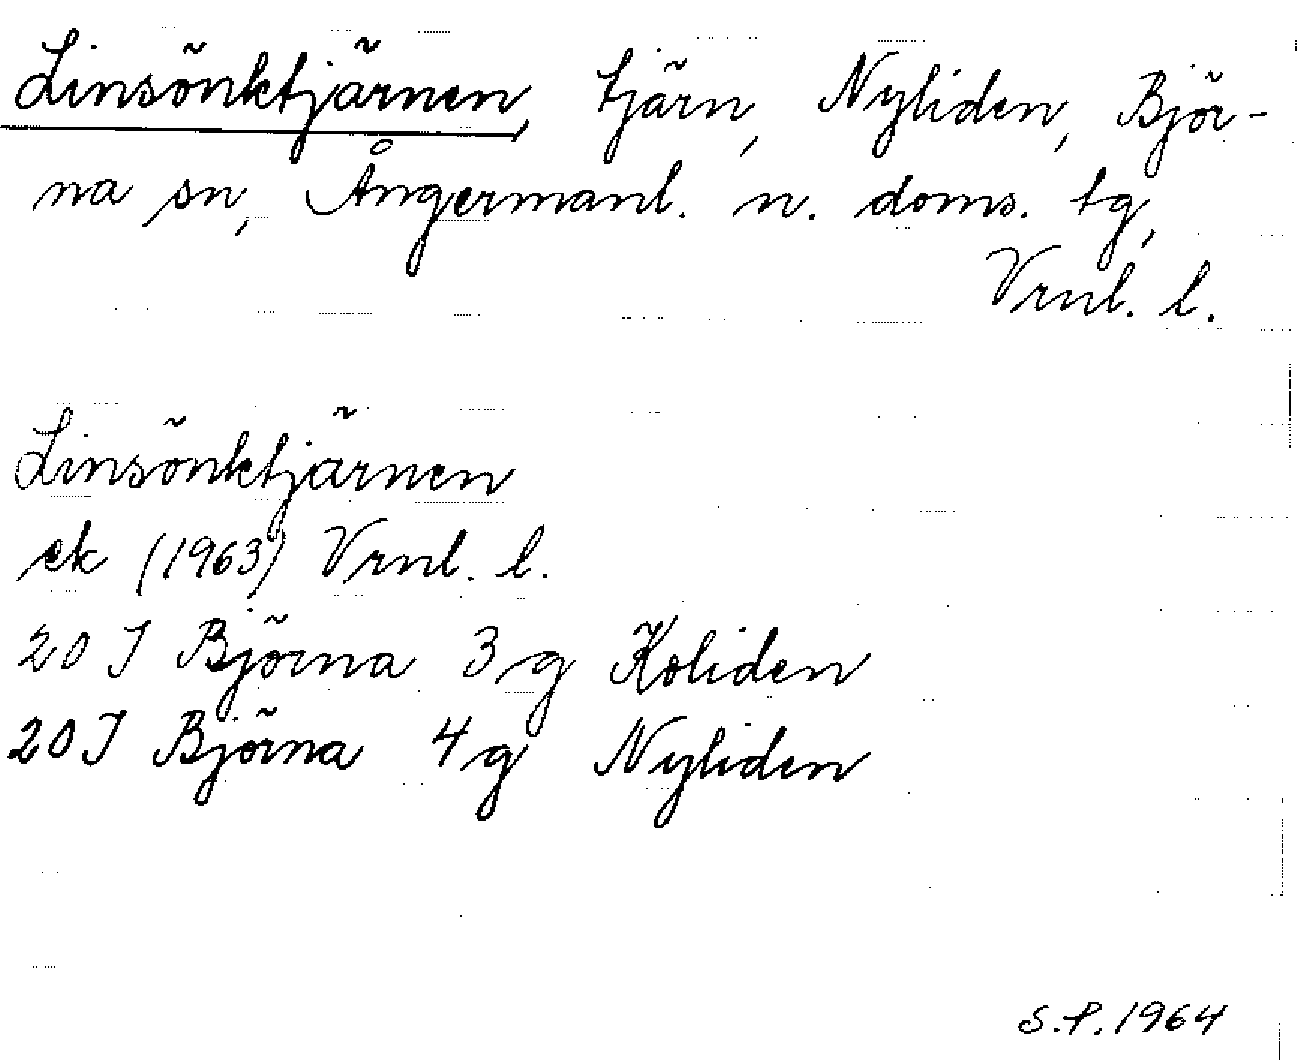 Linsönktjärnen, tjärn, Nyliden, Björ-
na sn, Ångermanl. n. doms. tg,
Vrnl. l.
Linsönktjärnen
ek (1963) Vrnl. l.
20 J Björna 3 g Koliden
20 J Björna 4 g Nyliden
S.P. 1964